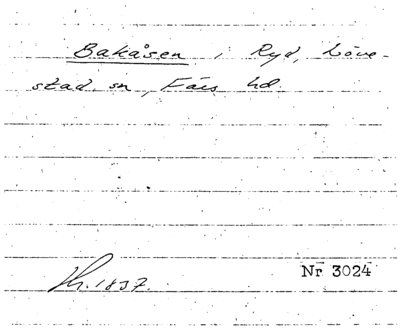 Bakåsen i Ryd, Löve-
stad sn, Färs hd.
Nr 3024
Kr. 1837.